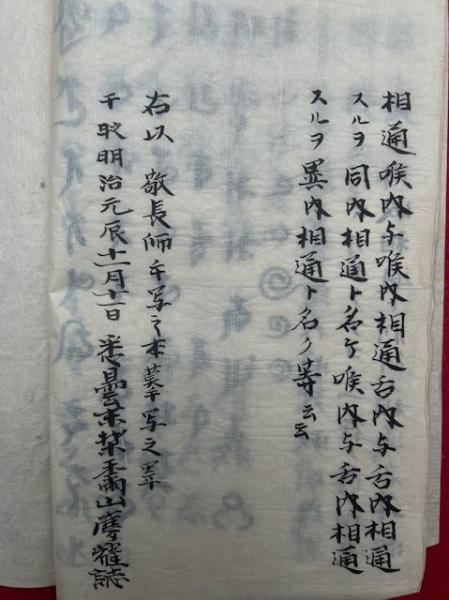 相通喉内与喉内相通舌内与舌内相通
スルヲ同内相通ト名ケ喉内与舌内相通
スルヲ異内相通ト名ク等云云
右以 敬長師手写之本摹写之畢
于時明治元辰十一月十一日 悉曇末葉香雨山摩龍誌